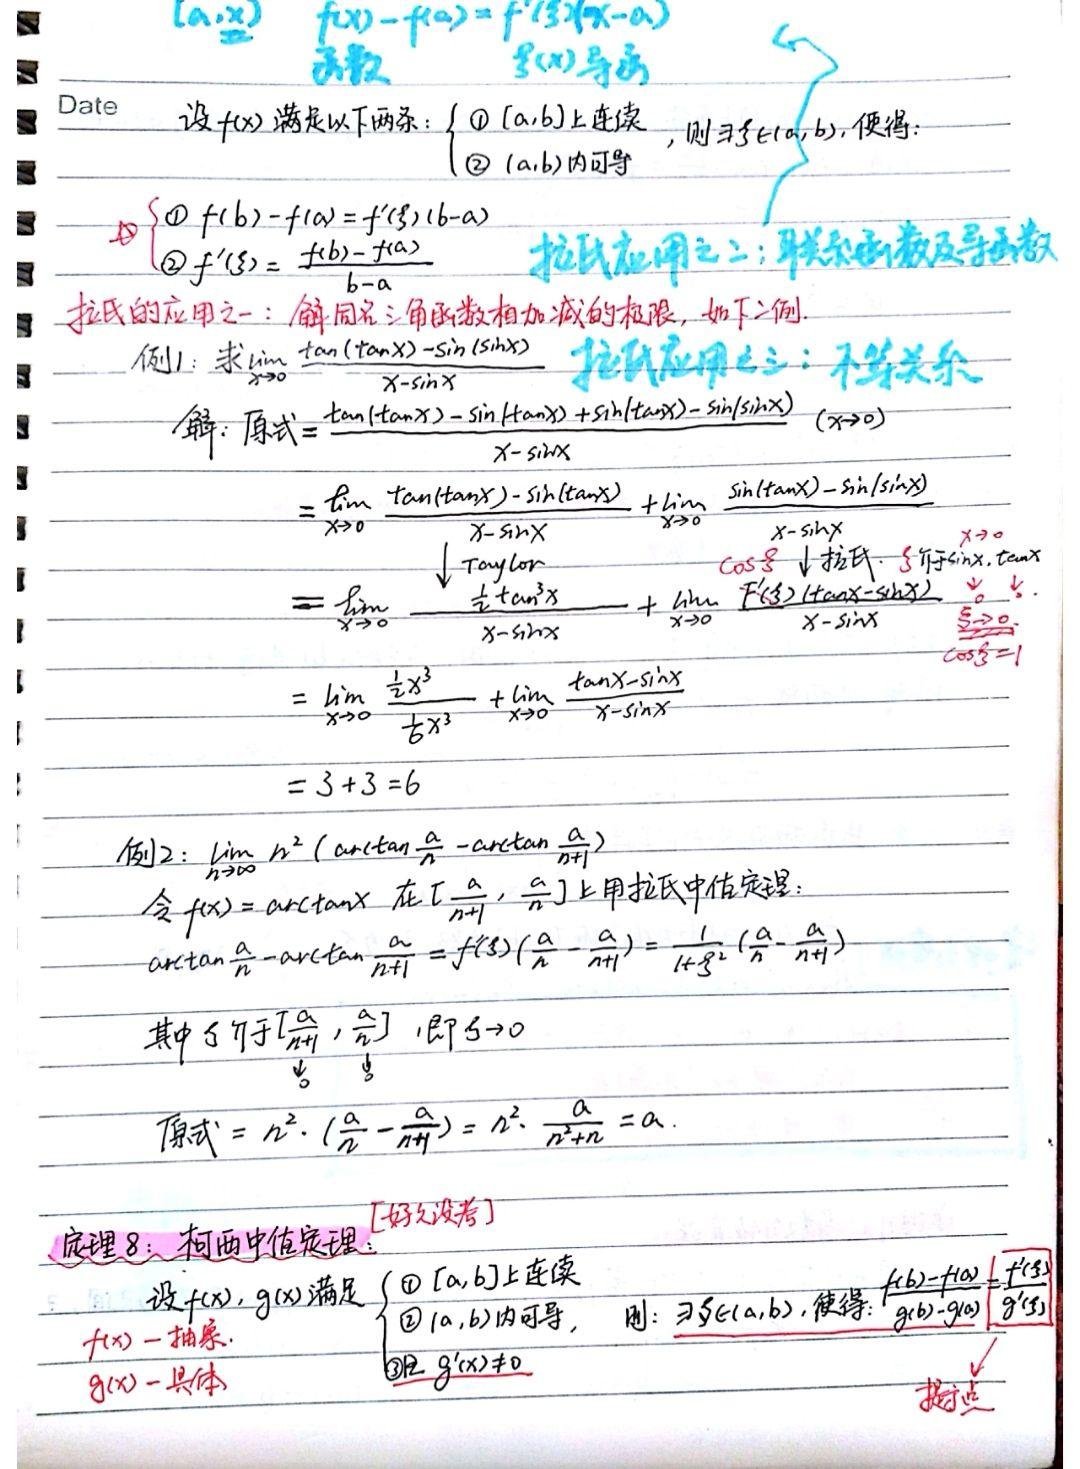 [a,x] f(x)-f(a)=f'(ξ)(x-a)
函数 ξ(x)导函
Date
设f(x)满足以下两条: { ① [a,b]上连续 ② (a,b)内可导 ,则∃ξ∈(a,b),使得:
⇒ { ① f(b)-f(a)=f'(ξ)(b-a)
② f'(ξ)= \frac{f(b)-f(a)}{b-a}
拉氏应用之二:联关系函数及导函数
拉氏的应用之一: 解同名三角函数相加减的极限, 如下二例.
例1: 求\lim_{x→0} \frac{tan(tanx)-sin(sinx)}{x-sinx}
拉氏应用之三: 不等关系
解: 原式= \frac{tan(tanx)-sin(tanx)+sin(tanx)-sin(sinx)}{x-sinx} (x→0)
= \lim_{x→0} \frac{tan(tanx)-sin(tanx)}{x-sinx} + \lim_{x→0} \frac{sin(tanx)-sin(sinx)}{x-sinx}
x→0
↓ Taylor cosξ ↓ 拉氏. ξ介于sinx, tanx
= \lim_{x→0} \frac{\frac{1}{2}tan^3x}{x-sinx} + \lim_{x→0} \frac{F'(ξ)(tanx-sinx)}{x-sinx}
↓ ↓
0 0
ξ→0.
cosξ=1
= \lim_{x→0} \frac{\frac{1}{2}x^3}{\frac{1}{6}x^3} + \lim_{x→0} \frac{tanx-sinx}{x-sinx}
= 3+3=6
例2: \lim_{n→∞} n^2(arctan\frac{a}{n}-arctan\frac{a}{n+1})
令f(x)=arctanx 在[\frac{a}{n+1}, \frac{a}{n}]上用拉氏中值定理:
arctan\frac{a}{n}-arctan\frac{a}{n+1}=f'(ξ)(\frac{a}{n}-\frac{a}{n+1})=\frac{1}{1+ξ^2}(\frac{a}{n}-\frac{a}{n+1})
其中ξ介于[\frac{a}{n+1}, \frac{a}{n}] ,即ξ→0
↓ ↓
0 0
原式=n^2·(\frac{a}{n}-\frac{a}{n+1})=n^2·\frac{a}{n^2+n}=a.
[好久没考]
定理8: 柯西中值定理:
设f(x), g(x)满足 { ① [a,b]上连续 ② (a,b)内可导, ③且 g'(x)≠0 则: ∃ξ∈(a,b), 使得: \frac{f(b)-f(a)}{g(b)-g(a)}=\frac{f'(ξ)}{g'(ξ)}
f(x)-抽象.
g(x)-具体
提示点